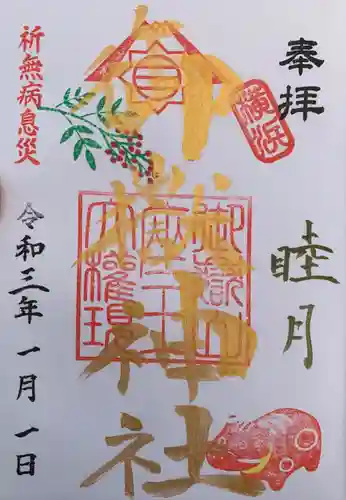 奉拝
横浜
睦月
御嶽神社
御嶽山
座王
大權現
祈無病息災
令和三年一月一日